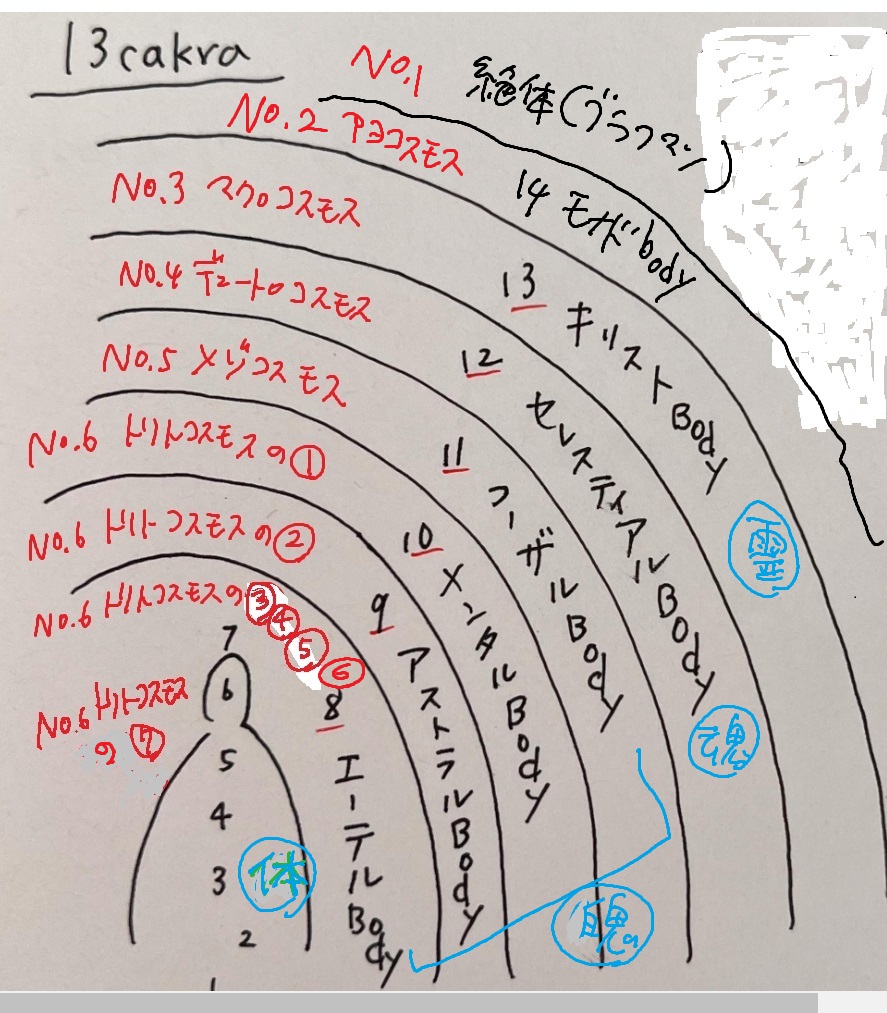 13cakra
No.1 絶体(ブラフマン)
No.2 アヨコスモス
14 モナドbody
No.3 マクロコスモス
13 キリストBody
No.4 デュートロコスモス
12 セレスティアルBody
No.5 メゾコスモス
11 コーザルBody
No.6 トリトコスモスの①
10 メンタルBody
No.6 トリトコスモスの②
9 アストラルBody
No.6 トリトコスモスの③④⑤⑥
8 エーテルBody
No.6 トリトコスモスの⑦
7
6
5
4
3
2
1
霊
魂
体
魄